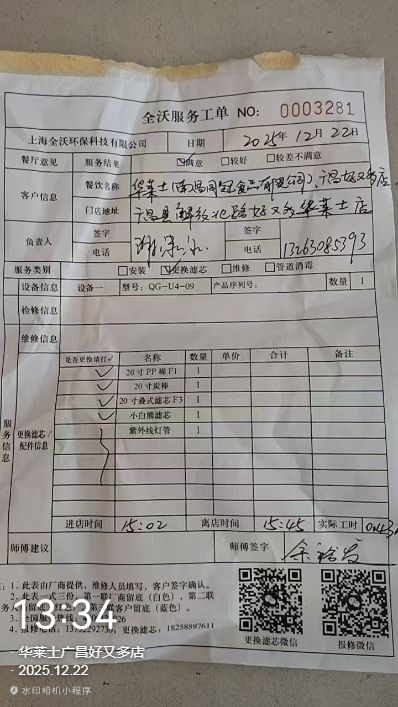 全沃服务工单 NO: 0003281
上海全沃环保科技有限公司 日期 2025年12月22日
餐厅意见 服务结果 ☑满意 □较好 □较差不满意
客户信息 餐饮名称 华莱士
门店地址 广昌县解放北路好又多华莱士店
负责人 签字 签字
电话 电话 13263085393
服务类别 □安装 ☑更换滤芯 □维修 □管道消毒
设备信息 设备一 型号: QG-U4-09 产品序列号: 数量 1
检修信息
维修信息
服务信息
更换滤芯/配件信息
是否更换请打✓ 名称 数量 单价 合计 备注
✓ 20寸PP棉F1 1
✓ 20寸炭棒 1
✓ 20寸叠式滤芯F3 1
✓ 小白熊滤芯 1
紫外线灯管 1
进店时间 15:02 离店时间 15:45 实际工时
师傅建议 师傅签字
1. 此表由厂商提供,维修人员填写,客户签字确认。
2. 此表一式三份,第一联厂商留底(白色),第二联
客户留底(蓝色)。
更换滤芯: 18258897611
更换滤芯微信 报修微信
13:34
华莱士广昌好又多店
2025.12.22
水印相机小程序